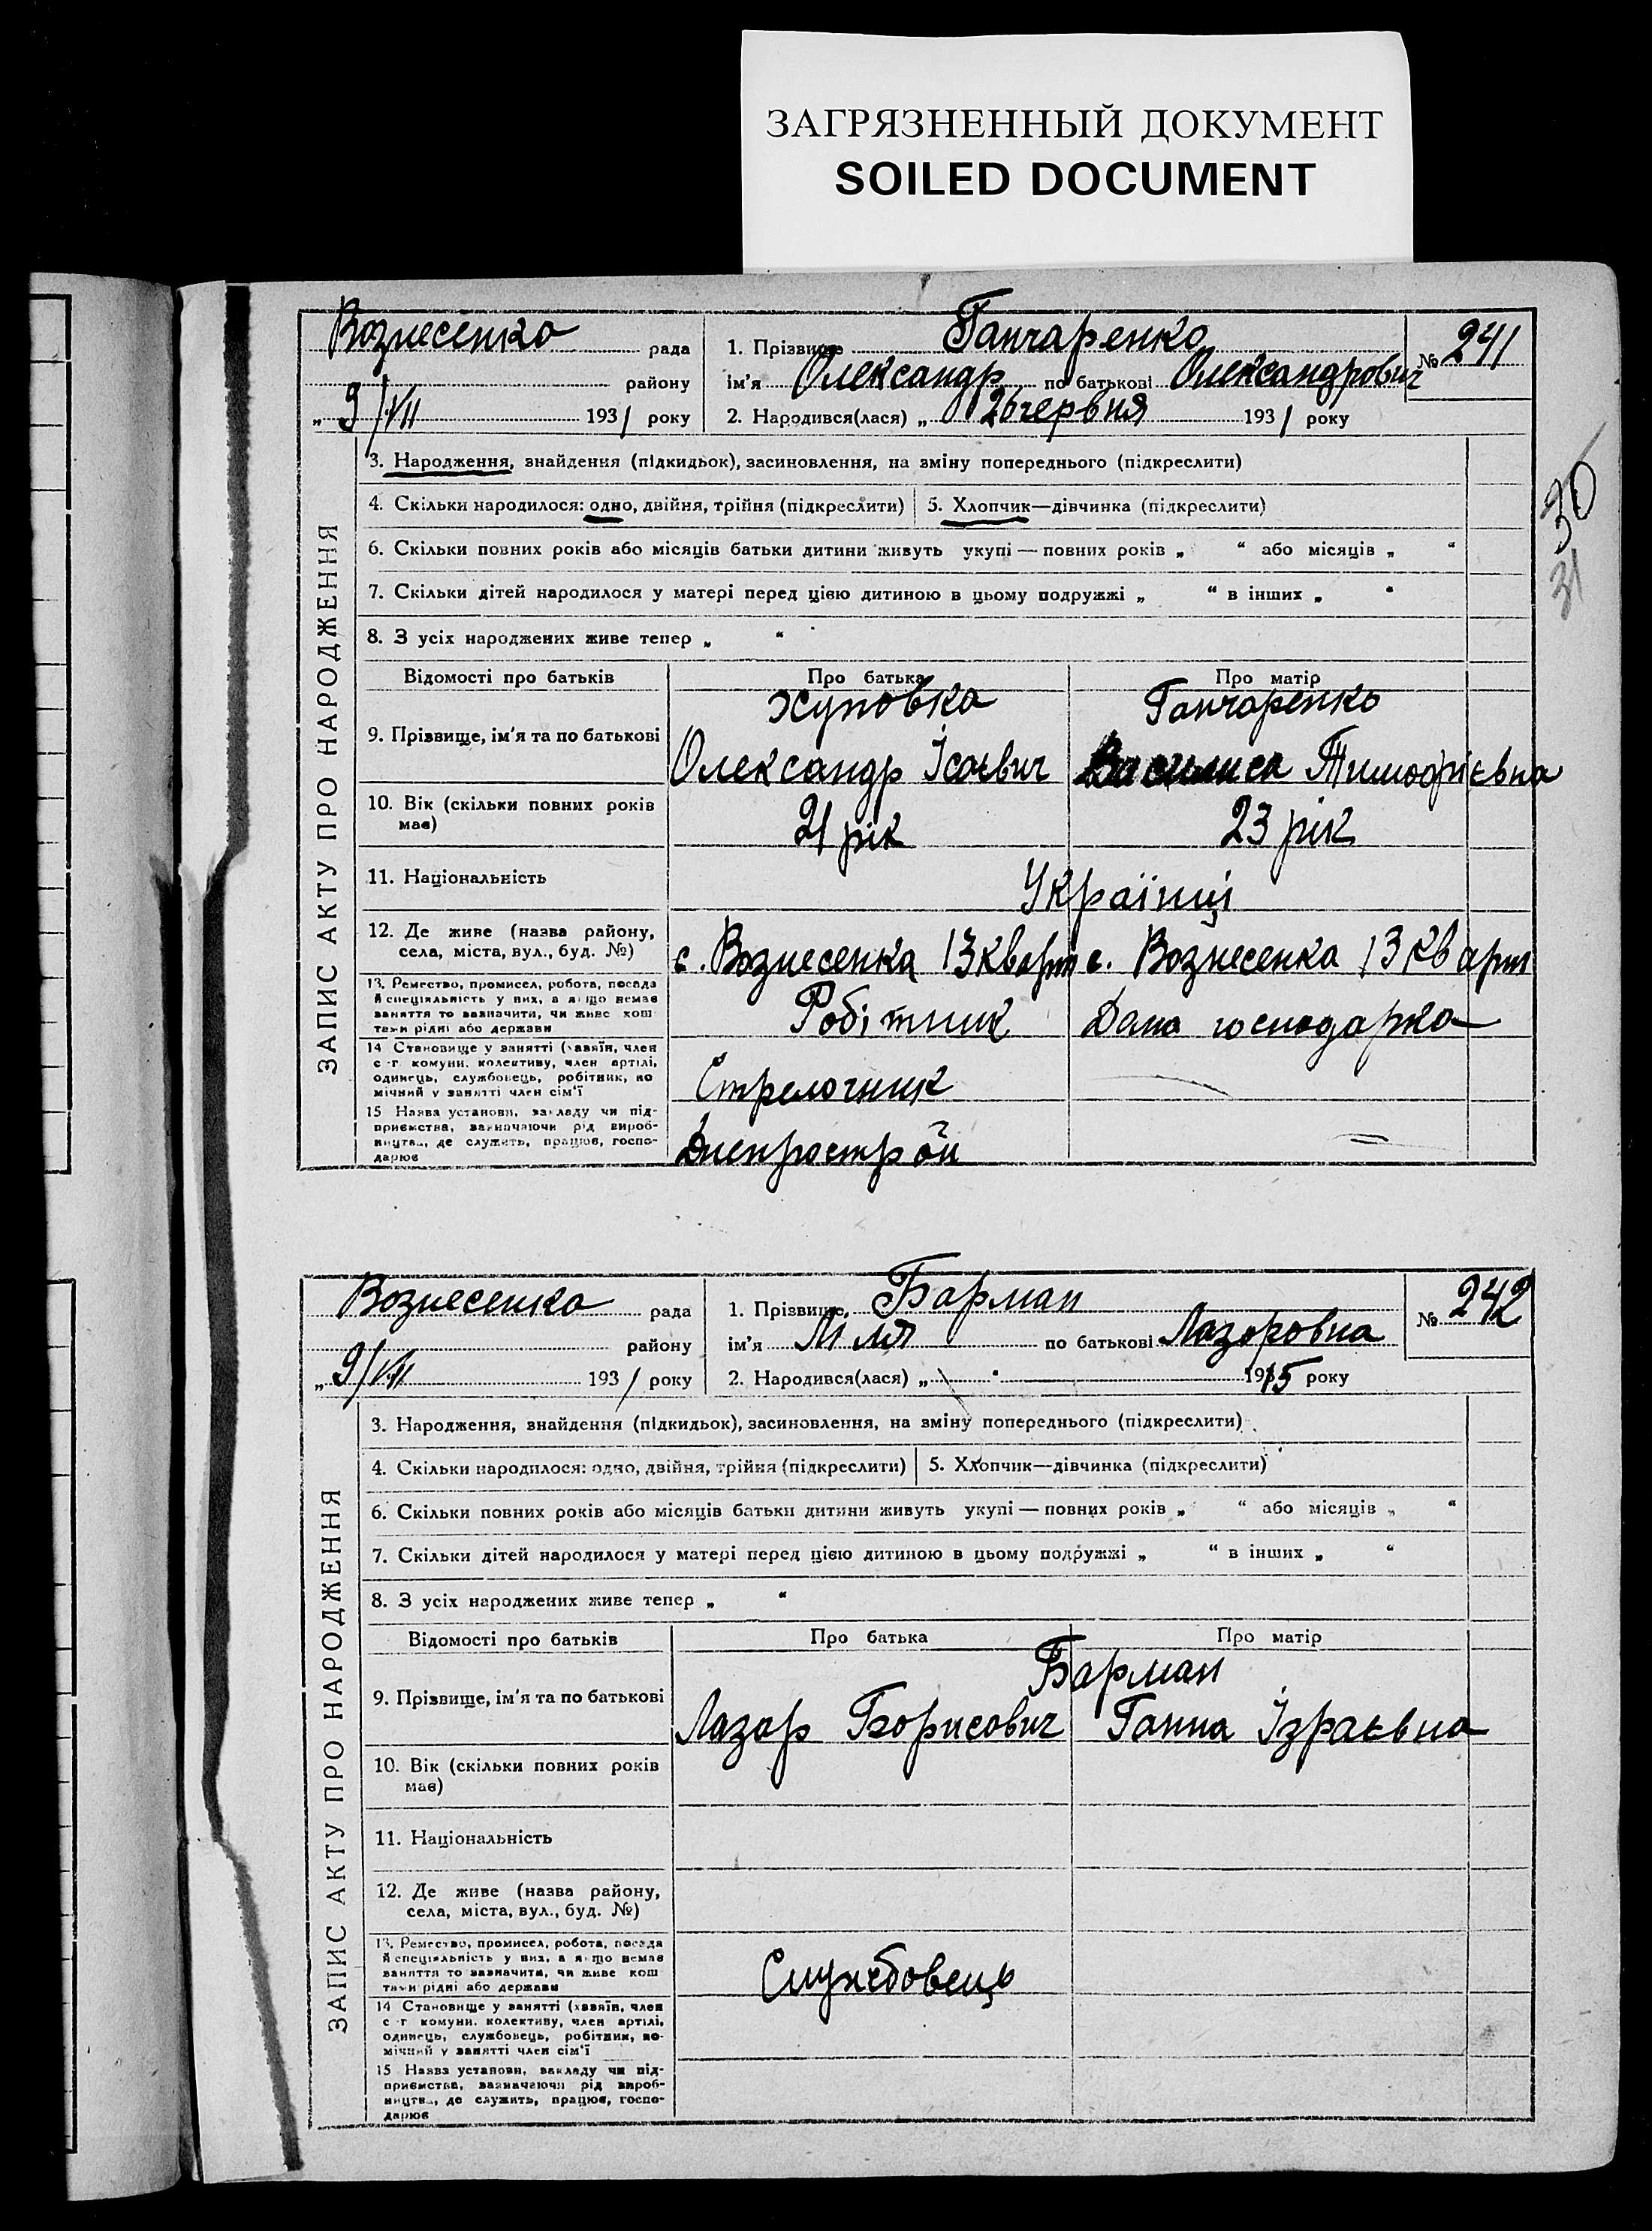 ЗАГРЯЗНЕННЫЙ ДОКУМЕНТ
SOILED DOCUMENT
Вознесенка рада
району
„ 9/VII 1931 року
1. Прізвище Ганчаренко
ім'я Олександр по батькові Олександрович
2. Народився(лася) „ 26 червня 1931 року
№ 241
30
31
ЗАПИС АКТУ ПРО НАРОДЖЕННЯ
3. Народження, знайдення (підкидьок), засиновлення, на зміну попереднього (підкреслити)
4. Скільки народилося: одно, двійня, трійня (підкреслити) 5. Хлопчик—дівчинка (підкреслити)
6. Скільки повних років або місяців батьки дитини живуть укупі — повних років „ “ або місяців „ “
7. Скільки дітей народилося у матері перед цією дитиною в цьому подружжі „ “ в інших „ “
8. З усіх народжених живе тепер „ “
Відомості про батьків Про батька Про матір
9. Прізвище, ім'я та по батькові
Ганчаренко
Олександр Ісаєвич Василиса Тимофієвна
10. Вік (скільки повних років
має)
21 рік 23 рік
11. Національність Українці
12. Де живе (назва району,
села, міста, вул., буд. №)
с. Вознесенка 13 кварт с. Вознесенка 13 кварт
13. Ремество, промисел, робота, посада
й спеціяльність у них, а якщо немає
заняття то зазначити, чи живе кош
тами рідні або держави
Робітник Дома господарка
14 Становище у занятті (хазяїн, член
с-г комуни, колективу, член артілі,
одинець, службовець, робітник, по
мічний у занятті член сім'ї
Стрелочник
15 Назва установи, закладу чи під-
приємства, зазначаючи рід вироб-
ництва, де служить, працює, госпо-
дарює
Днепрострой
Вознесенка рада
району
„ 9/VII 1931 року
1. Прізвище Барман
ім'я Ліля по батькові Лазоровна
2. Народився(лася) „ 1915 року
№ 242
ЗАПИС АКТУ ПРО НАРОДЖЕННЯ
3. Народження, знайдення (підкидьок), засиновлення, на зміну попереднього (підкреслити)
4. Скільки народилося: одно, двійня, трійня (підкреслити) 5. Хлопчик—дівчинка (підкреслити)
6. Скільки повних років або місяців батьки дитини живуть укупі — повних років „ “ або місяців „ “
7. Скільки дітей народилося у матері перед цією дитиною в цьому подружжі „ “ в інших „ “
8. З усіх народжених живе тепер „ “
Відомості про батьків Про батька Про матір
9. Прізвище, ім'я та по батькові
Барман
Лазар Борисович Ганна Ізраєвна
10. Вік (скільки повних років
має)
11. Національність
12. Де живе (назва району,
села, міста, вул., буд. №)
13. Ремество, промисел, робота, посада
й спеціяльність у них, а якщо немає
заняття то зазначити, чи живе кош
тами рідні або держави
Службовець
14 Становище у занятті (хазяїн, член
с-г комуни, колективу, член артілі,
одинець, службовець, робітник, по-
мічний у занятті член сім'ї
15 Назва установи, закладу чи під-
приємства, зазначаючи рід вироб-
ництва, де служить, працює, госпо-
дарює